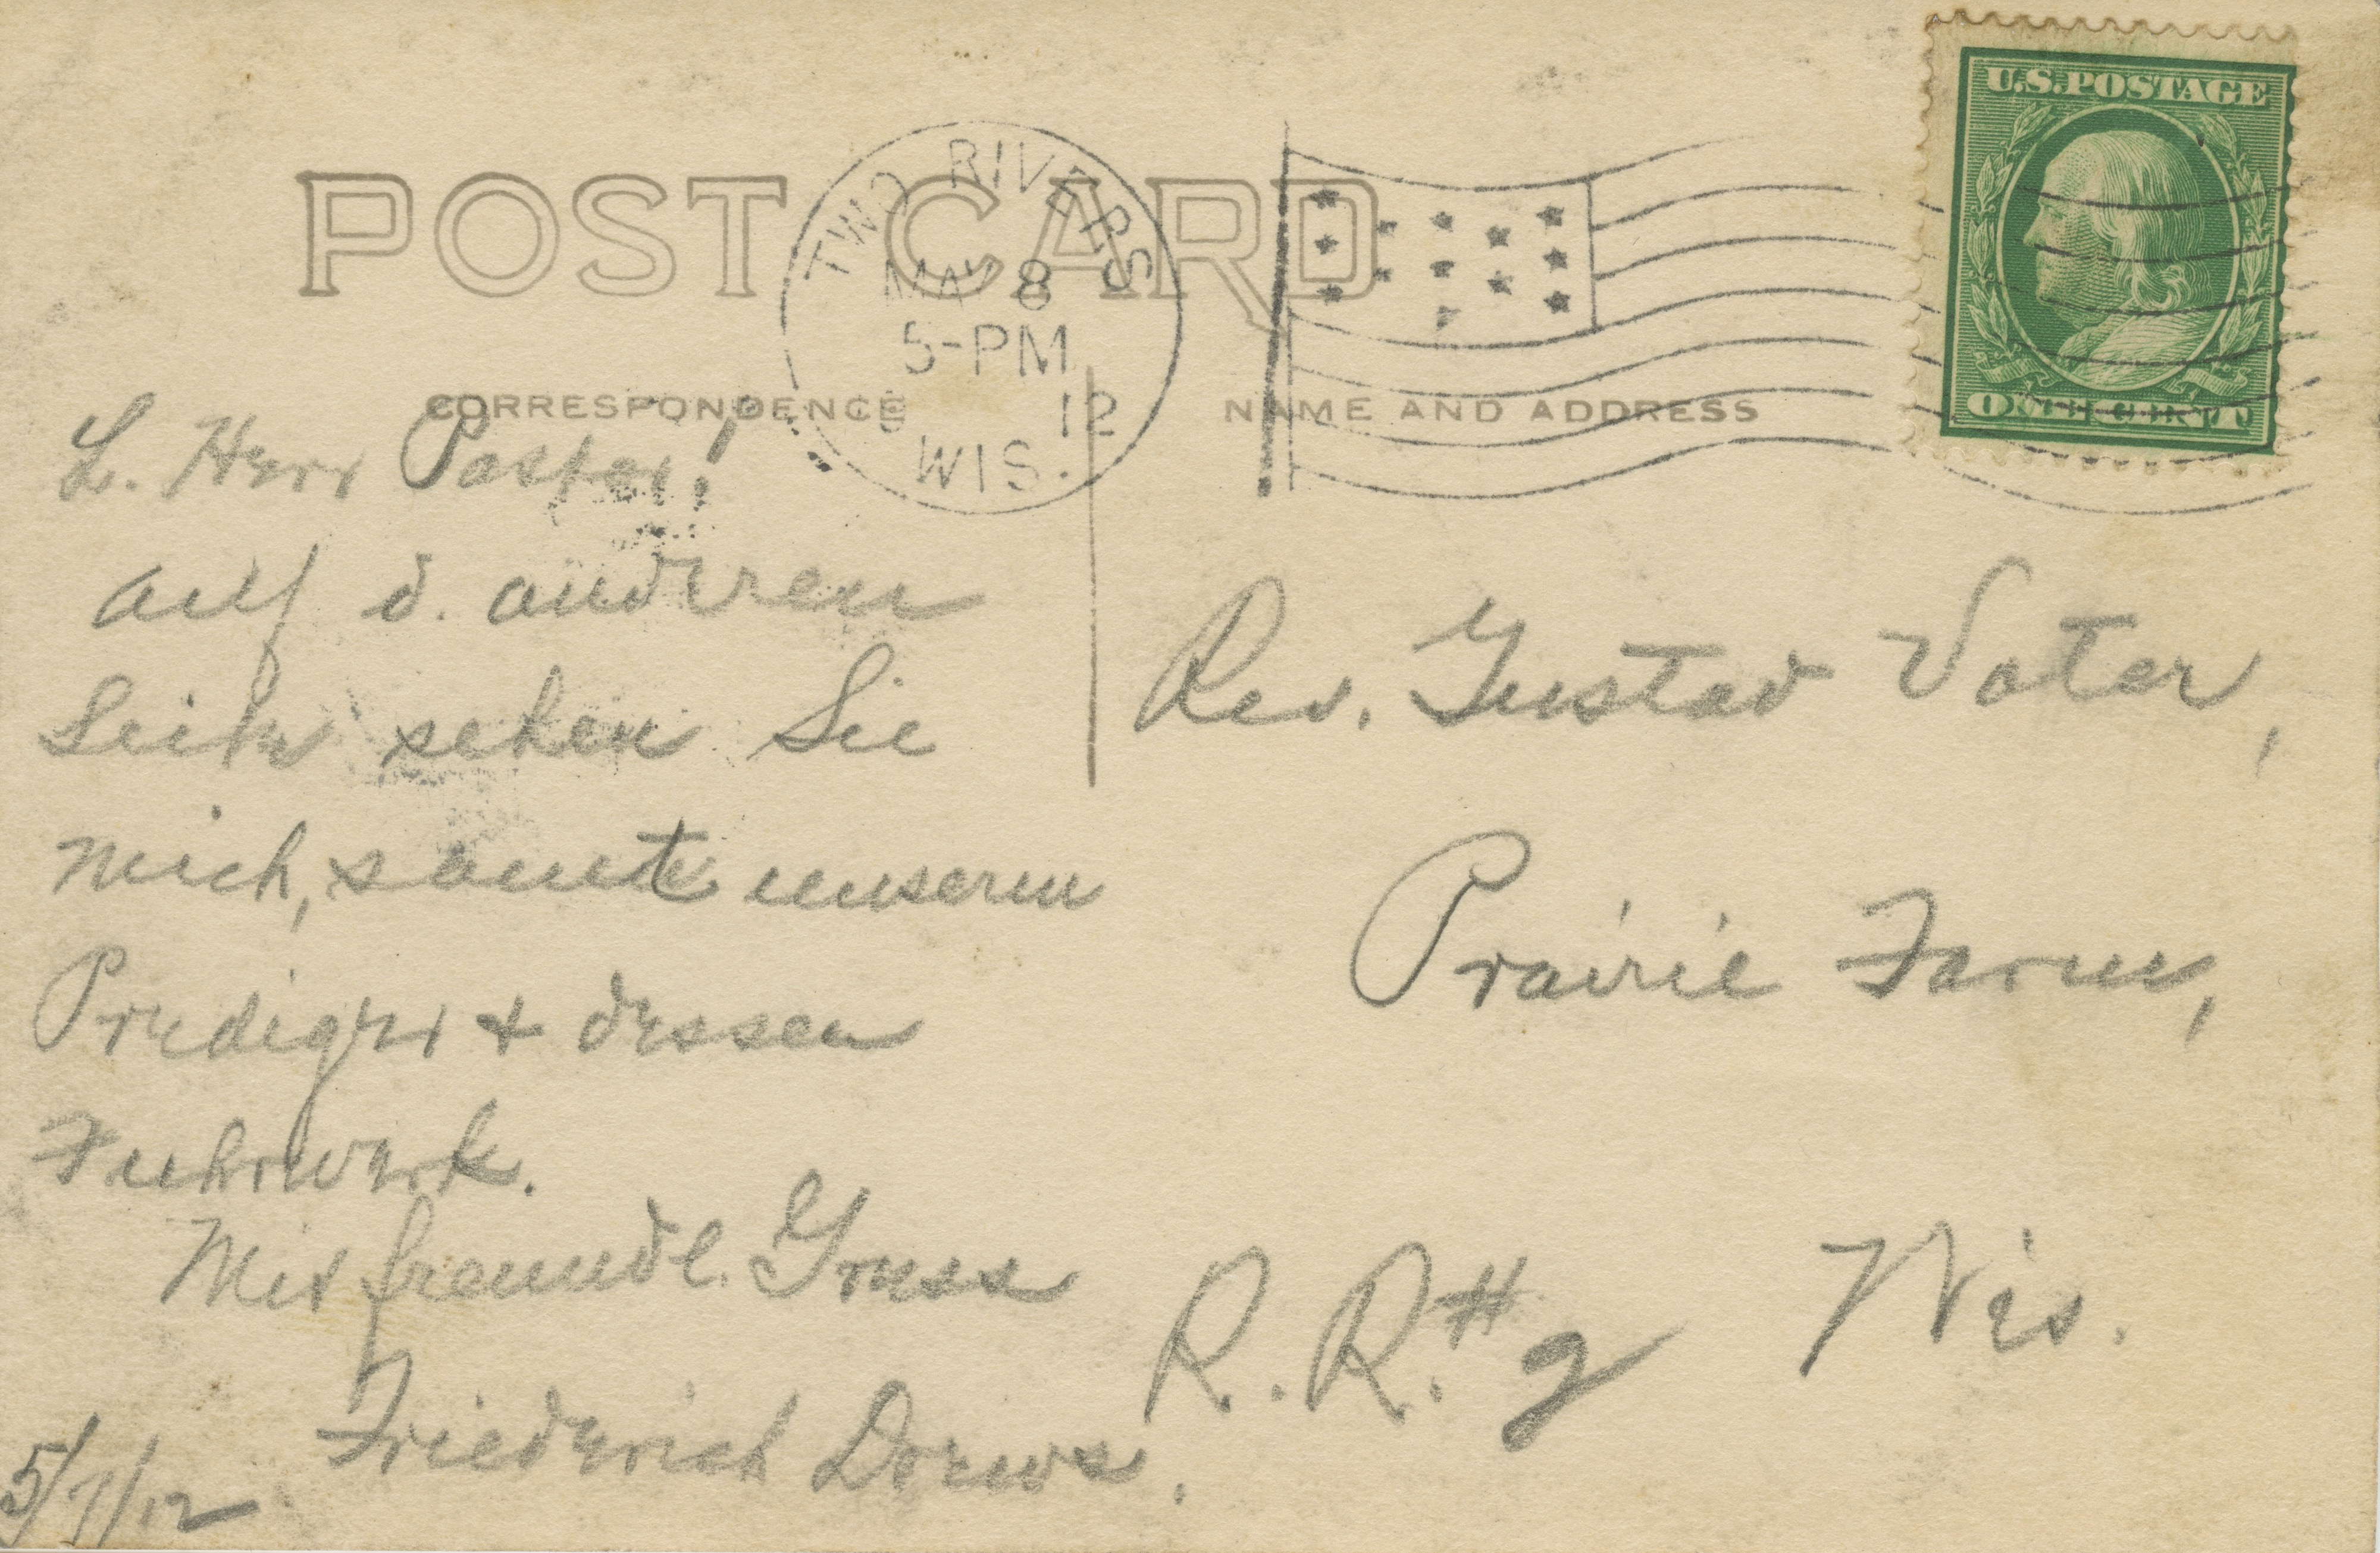 U.S. POSTAGE
ONE CENT
POST CARD
TWO RIVERS
MAY 8
5-PM
12
WIS.
CORRESPONDENCE
NAME AND ADDRESS
L. Herr Pastor!
Auf d. anderen
Seite sehen Sie
mich, samt unserm
Prediger + dessen
Fuhrwerk.
Mit freundl. Gruss
Friederich Drews.
5/7/12
Rev. Gustav Vater,
Prairie Farm,
Wis.
R. R. # 2